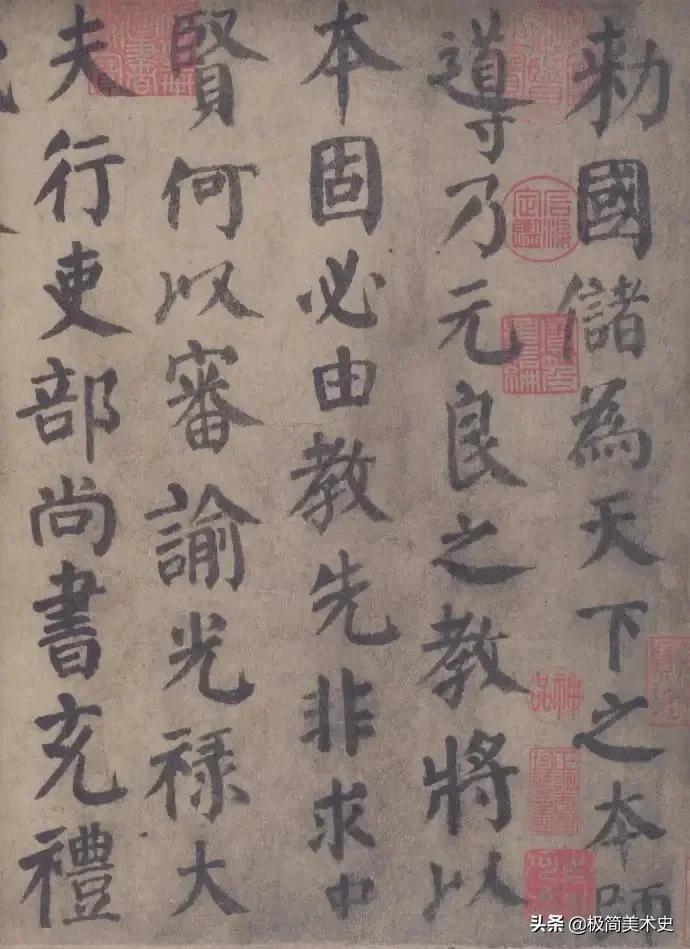 勅國儲為天下之本師
導乃元良之教將以
本固必由教先非求忠
賢何以審諭光祿大
夫行吏部尚書充禮
神品
头条 @极简美术史